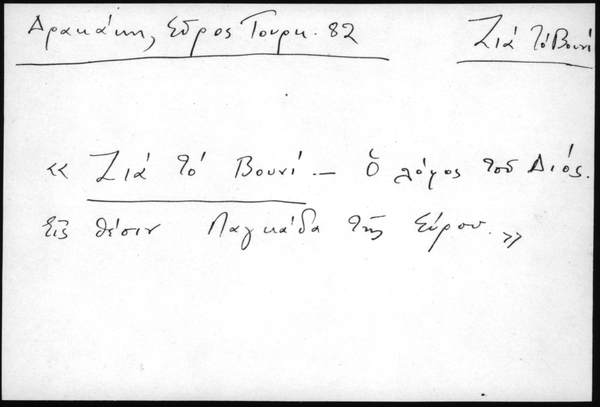 Δρακάκη, Σῦρος Τουρκ. 82
Ζιά τό Βουνί
« Ζιά τό Βουνί – Ὁ λόφος τοῦ Διός.
εἰς θέσιν Λαγκάδα τῆς Σύρου. »